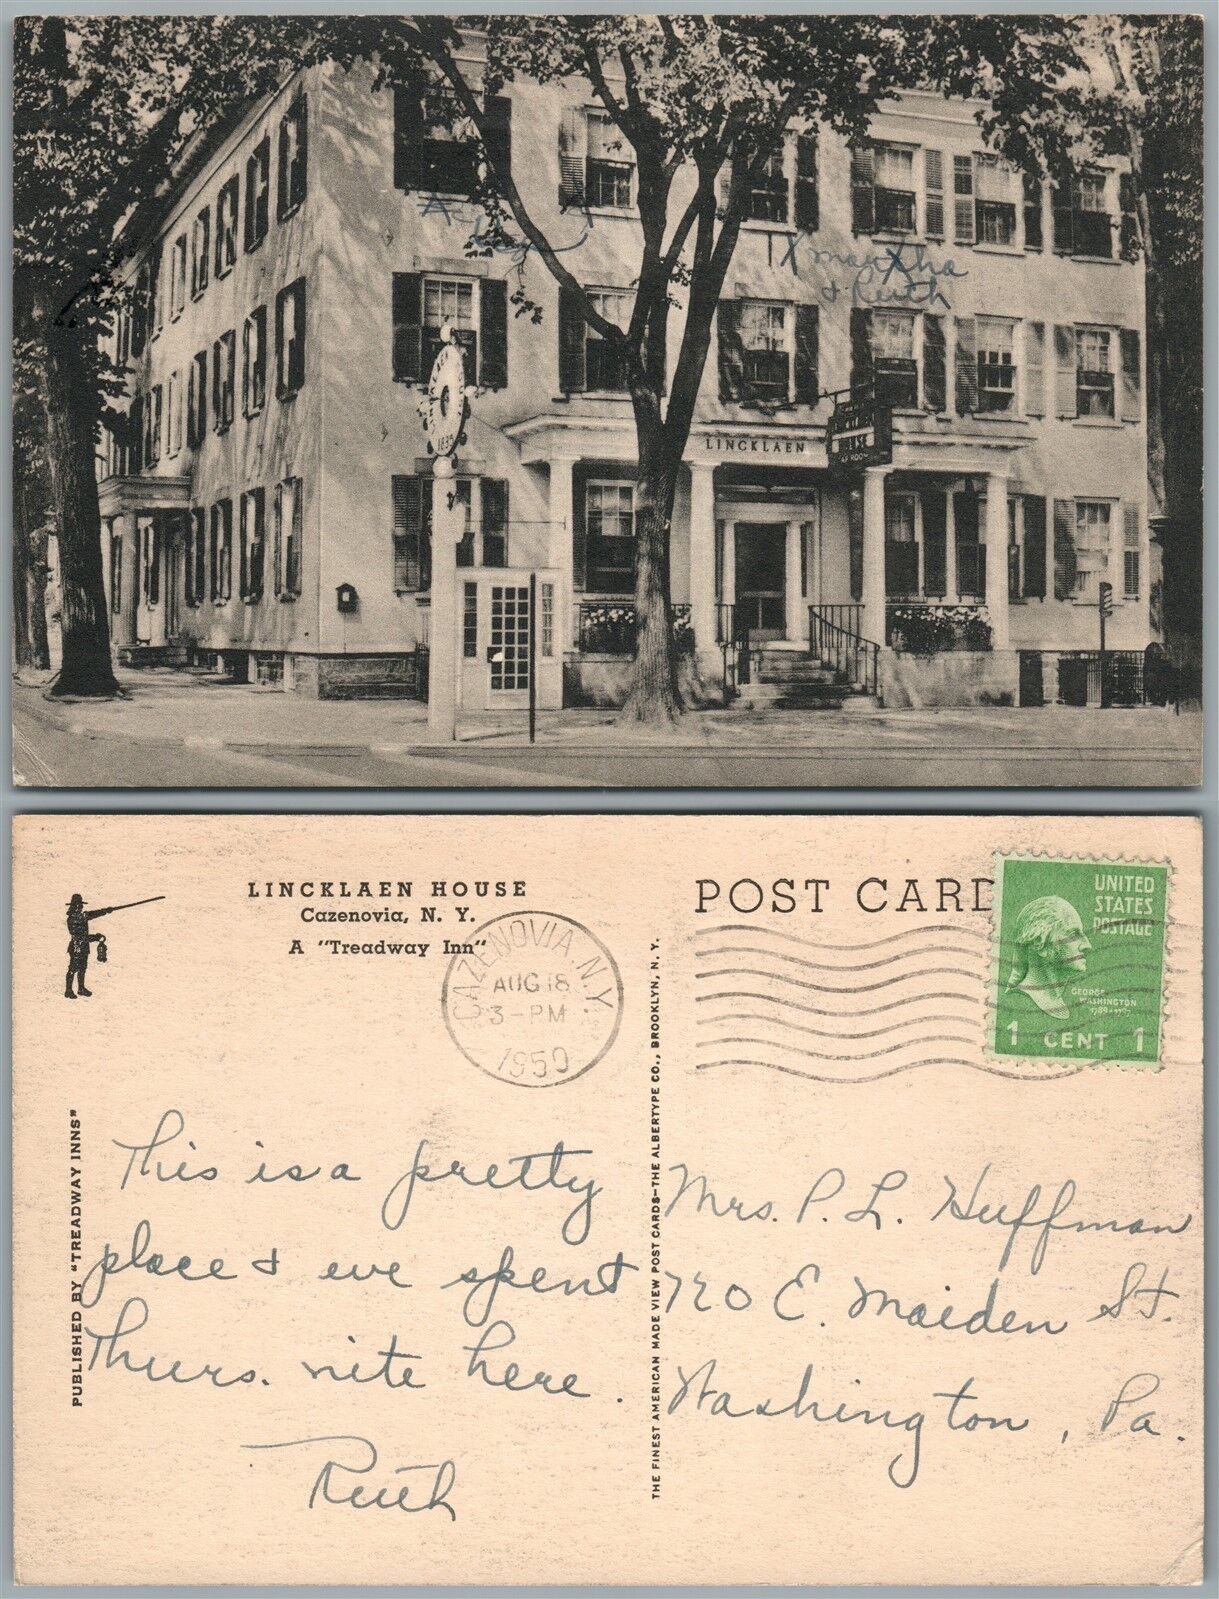 X Martha
& Ruth
LINCKLAEN
HOUSE
1835
LINCKLAEN HOUSE
Cazenovia, N. Y.
A "Treadway Inn"
CAZENOVIA, N.Y.
AUG 18
3-PM
1950
POST CARD
UNITED
STATES
POSTAGE
GEORGE
WASHINGTON
1789-1797
1 CENT 1
PUBLISHED BY "TREADWAY INNS"
THE FINEST AMERICAN MADE VIEW POST CARDS—THE ALBERTYPE CO., BROOKLYN, N. Y.
This is a pretty
place & we spent
Thurs. nite here.
Ruth
Mrs. P. L. Huffman
720 E. Maiden St.
Washington, Pa.